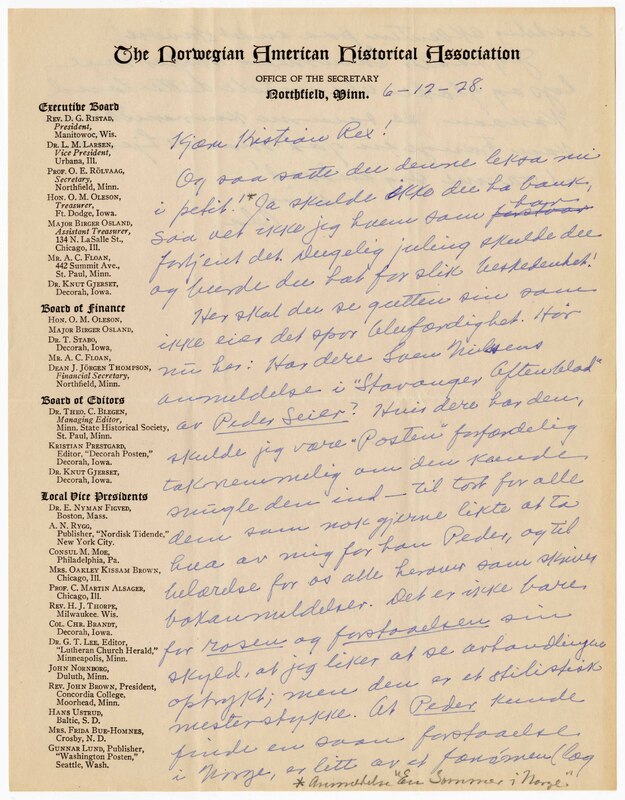 The Norwegian American Historical Association
OFFICE OF THE SECRETARY
Northfield, Minn.
6-12-28.
Executive Board
REV. D. G. RISTAD,
President,
Manitowoc, Wis.
DR. L. M. LARSEN,
Vice President,
Urbana, Ill.
PROF. O. E. RÖLVAAG,
Secretary,
Northfield, Minn.
HON. O. M. OLESON,
Treasurer,
Ft. Dodge, Iowa.
MAJOR BIRGER OSLAND,
Assistant Treasurer,
134 N. LaSalle St.,
Chicago, Ill.
MR. A. C. FLOAN,
442 Summit Ave.,
St. Paul, Minn.
DR. KNUT GJERSET,
Decorah, Iowa.
Board of Finance
HON. O. M. OLESON,
MAJOR BIRGER OSLAND,
DR. T. STABO,
Decorah, Iowa,
MR. A. C. FLOAN,
DEAN J. JÖRGEN THOMPSON,
Financial Secretary,
Northfield, Minn.
Board of Editors
DR. THEO. C. BLEGEN,
Managing Editor,
Minn. State Historical Society,
St. Paul, Minn.
KRISTIAN PRESTGARD,
Editor, "Decorah Posten,"
Decorah, Iowa.
DR. KNUT GJERSET,
Decorah, Iowa.
Local Vice Presidents
DR. E. NYMAN FIGVED,
Boston, Mass.
A. N. RYGG,
Publisher, "Nordisk Tidende,"
New York City.
CONSUL M. MOE,
Philadelphia, Pa.
MRS. OAKLEY KISSAM BROWN,
Chicago, Ill.
PROF. C. MARTIN ALSAGER,
Chicago, Ill.
REV. H. J. THORPE,
Milwaukee, Wis.
COL. CHR. BRANDT,
Decorah, Iowa.
DR. G. T. LEE, Editor,
"Lutheran Church Herald,"
Minneapolis, Minn.
JOHN NORNBORG,
Duluth, Minn.
REV. JOHN BROWN, President,
Concordia College,
Moorhead, Minn.
HANS USTRUD,
Baltic, S. D.
MRS. FRIDA BUE-HOMNES,
Crosby, N. D.
GUNNAR LUND, Publisher,
"Washington Posten,"
Seattle, Wash.
Kjære Kristian Rex!
Og saa satte du denne leksa mi
i petit!* Ja skulde ikke du ha bank,
saa vet ikke jeg hvem som har
fortjent det. Dugelig juling skulde du
og burde du hat for slik beskedenhet!
Her skal du se gutten sin som
ikke eier det spor blufærdighet. Hør
nu her: Har dere Sven Nilssens
anmeldelse i "Stavanger Aftenblad"
av Peder Seier? Hvis dere har den,
skulde jeg være "Posten" forfærdelig
taknemmelig om den kunde
smugle den ind — til tort for alle
dem som nok gjerne likte at ta
hua av mig for han Peder, og til
belærelse for os alle herover som skriver
bokanmeldelser. Det er ikke bare
for rosen og forstaaelsen sin
skyld, at jeg liker at se avhandlingen
optrykt; men den er et stilistisk
mesterstykke. At Peder kunde
finde en saan forstaaelse
i Norge, er litt av et fænomen (log
* Anmeldelse "En Sommer i Norge."